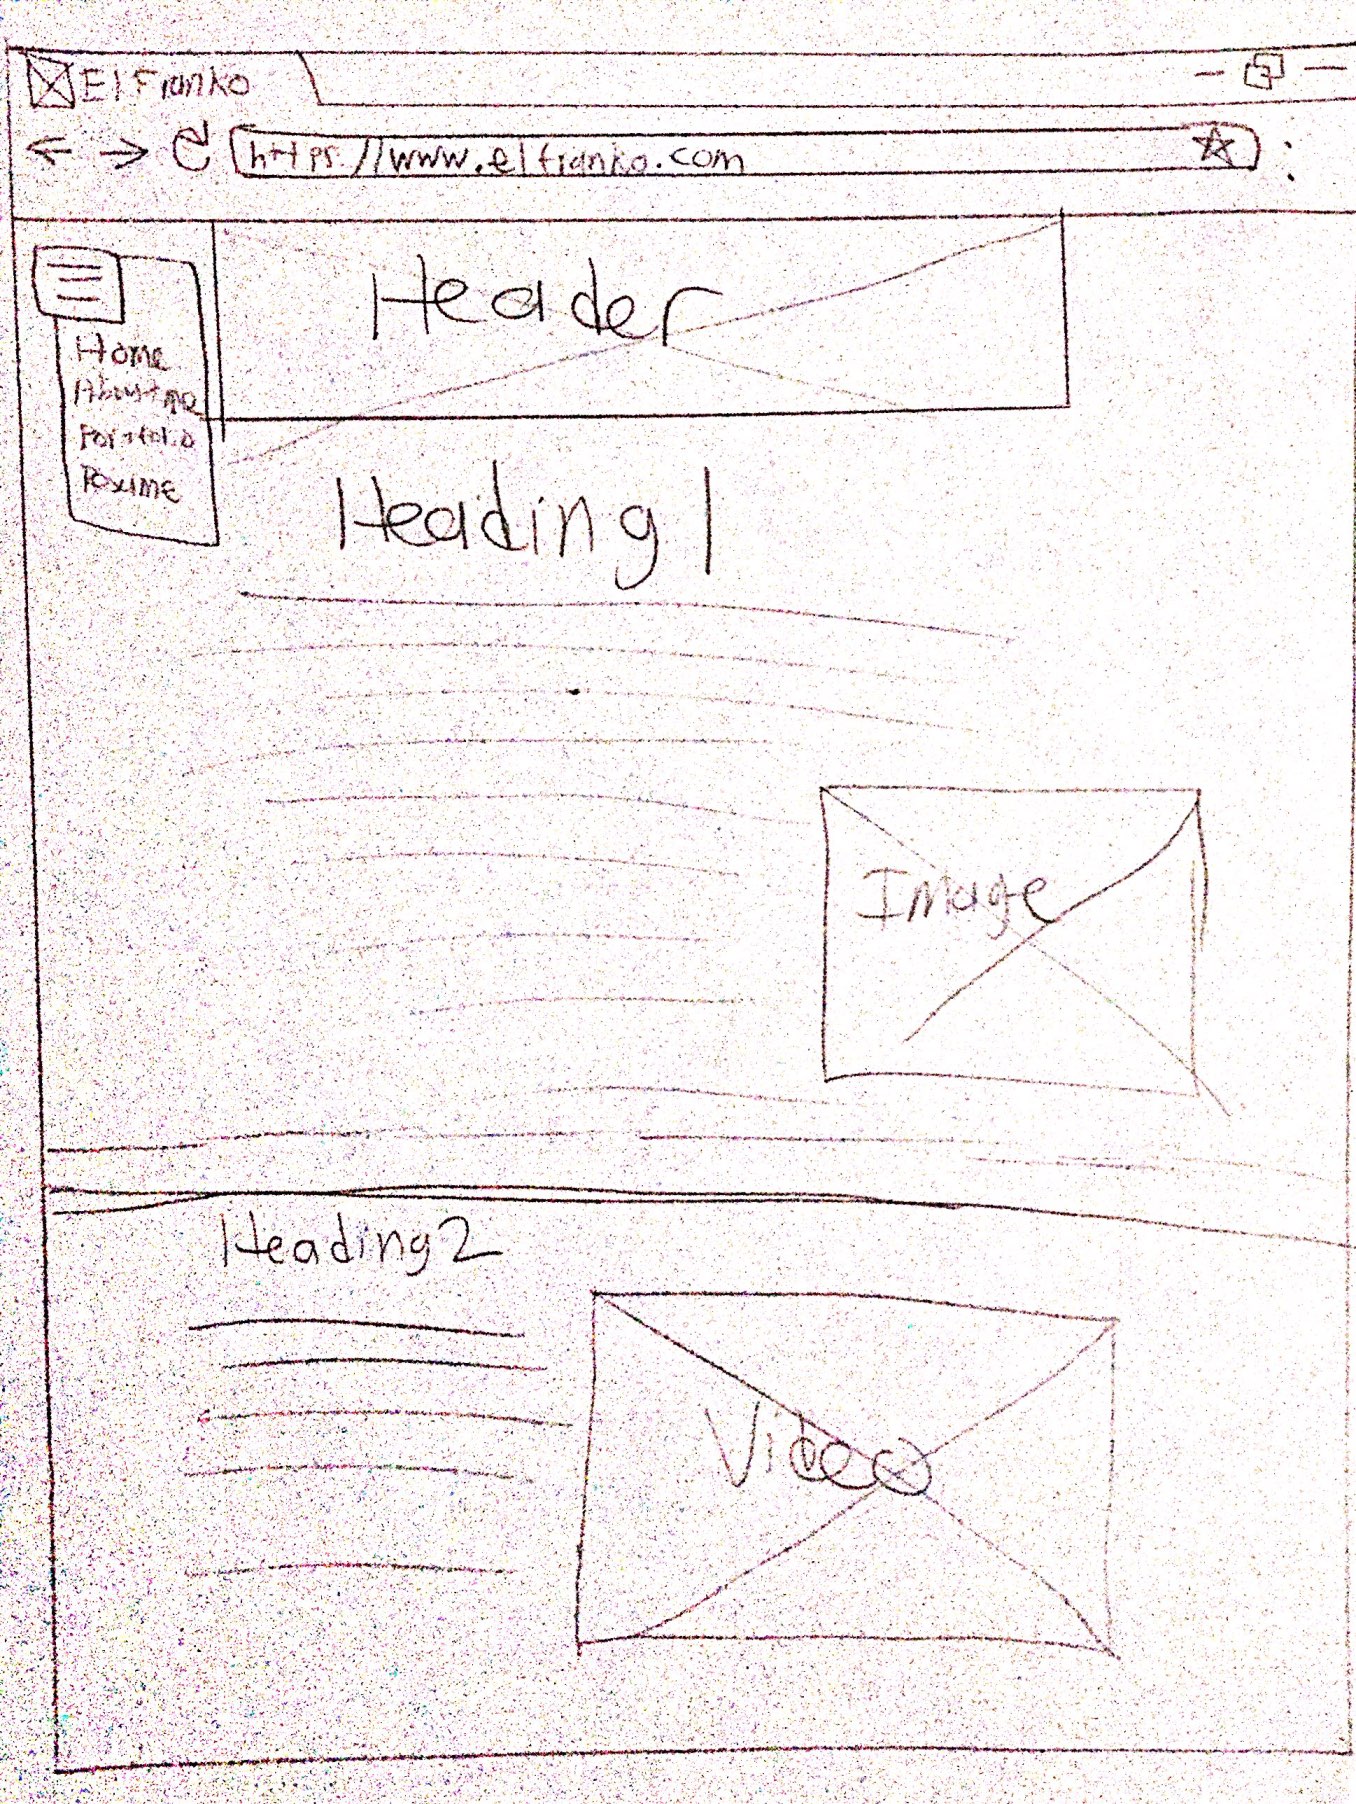 El Franko
https://www.elfranko.com
Header
Home
About me
Portfolio
Heading 1
Image
Heading 2
Video